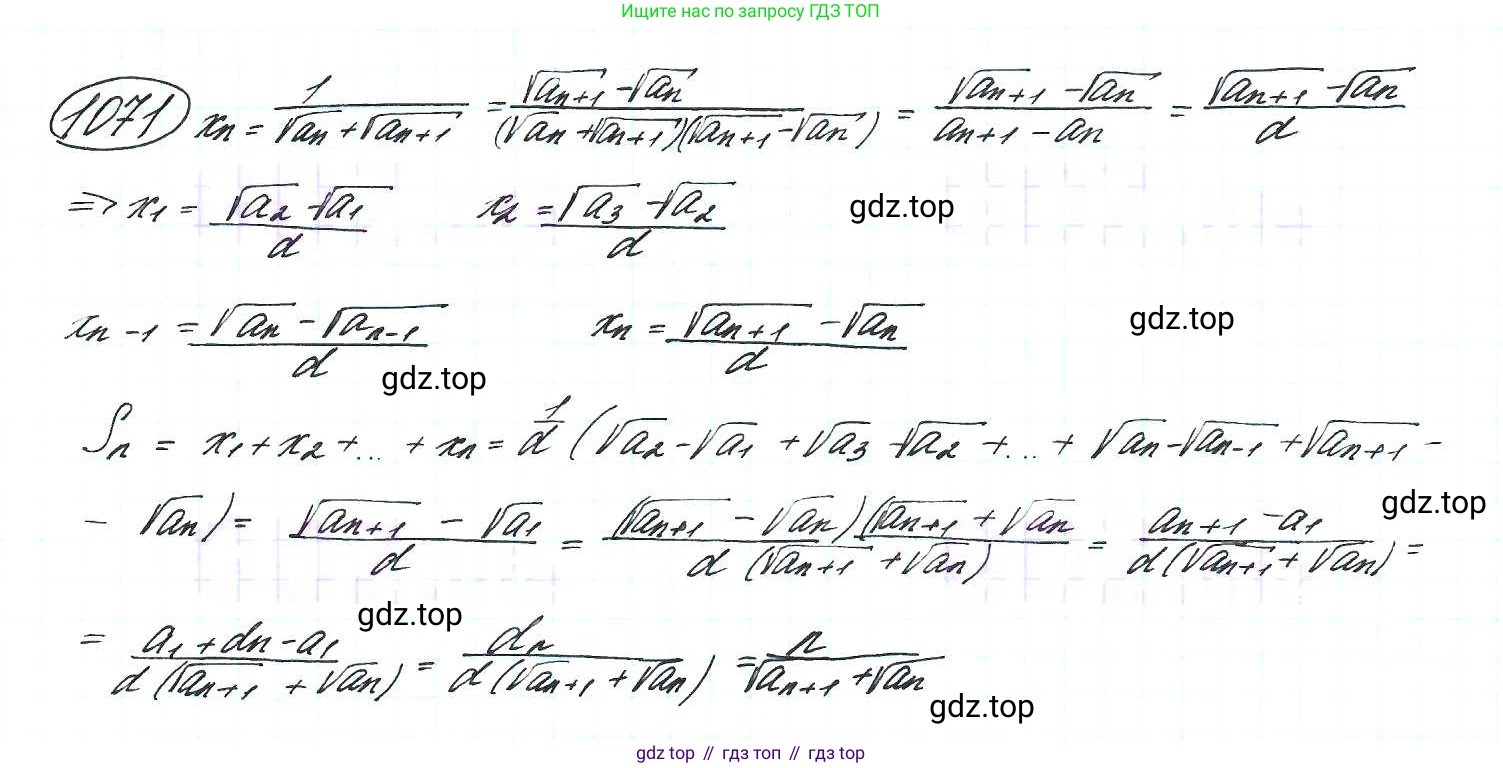 Ищите нас по запросу ГДЗ ТОП
1071 xₙ = 1/(√aₙ + √aₙ₊₁) = (√aₙ₊₁ - √aₙ)/((√aₙ + √aₙ₊₁)(√aₙ₊₁ - √aₙ)) = (√aₙ₊₁ - √aₙ)/(aₙ₊₁ - aₙ) = (√aₙ₊₁ - √aₙ)/d
=> x₁ = (√a₂ - √a₁)/d x₂ = (√a₃ - √a₂)/d gdz.top
xₙ₋₁ = (√aₙ - √aₙ₋₁)/d xₙ = (√aₙ₊₁ - √aₙ)/d gdz.top
gdz.top
Sₙ = x₁ + x₂ + ... + xₙ = 1/d (√a₂ - √a₁ + √a₃ - √a₂ + ... + √aₙ - √aₙ₋₁ + √aₙ₊₁ -
- √aₙ) = (√aₙ₊₁ - √a₁)/d = (√aₙ₊₁ - √aₙ)(√aₙ₊₁ + √aₙ/d(√aₙ₊₁ + √aₙ) = (aₙ₊₁ - a₁)/(d(√aₙ₊₁ + √aₙ)) = gdz.top
gdz.top
= (a₁ + dn - a₁)/(d(√aₙ₊₁ + √aₙ)) = dn/(d(√aₙ₊₁ + √aₙ)) = n/(√aₙ₊₁ + √aₙ)
gdz.top
gdz top // гдз топ // гдз top